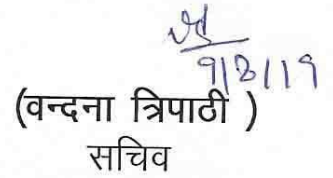 9/3/19
(वन्दना त्रिपाठी )
सचिव